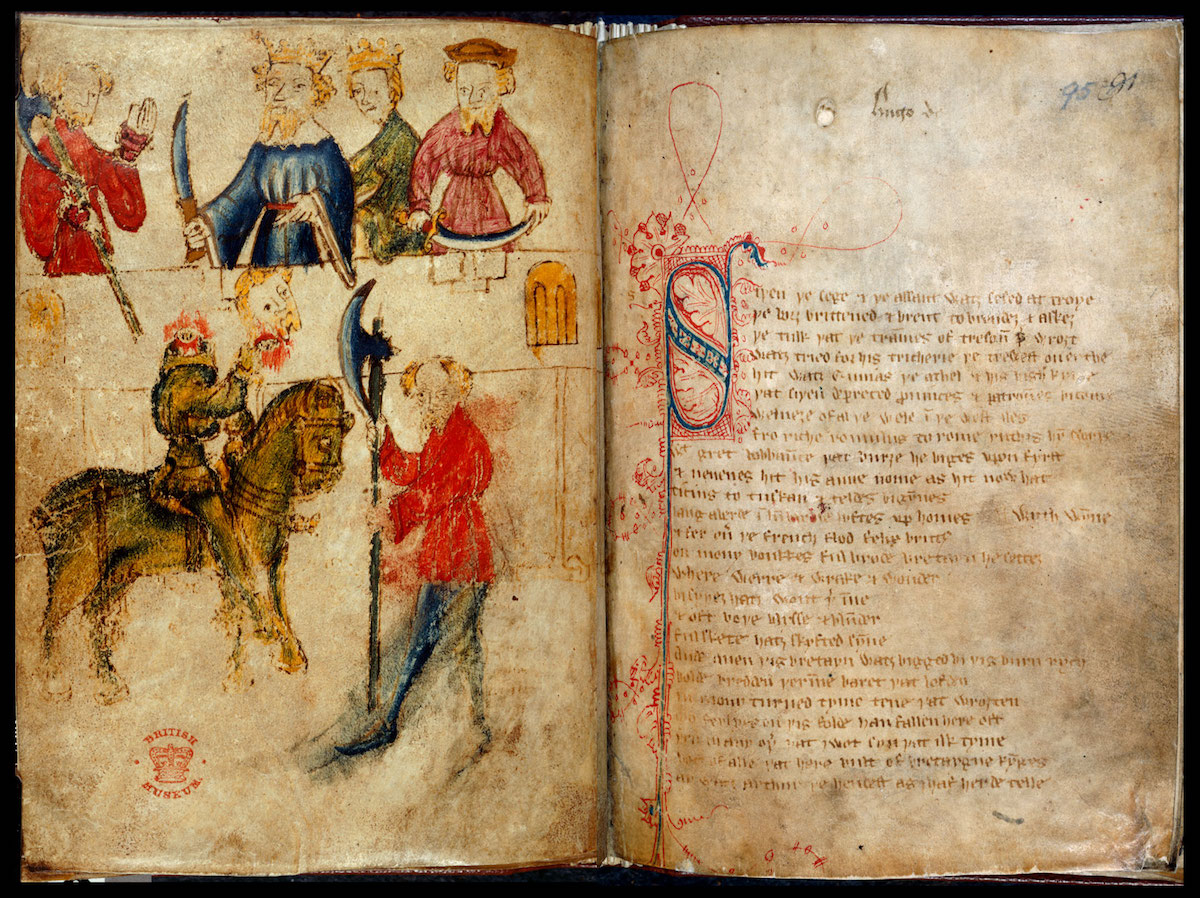 BRITISH
MUSEUM
95 91
Hugo de
Siþen þe sege & þe assaut watz sesed at troye
þe borȝ brittened & brent to brondez & askez
þe tulk þat þe trammes of tresoū þ wroȝt
watz tried for his tricherie þe trewest on erthe
hit watz Ennias þe athel & his highe kynde
þat siþen depreced prouinces & patrounes bicome
welneȝe of al þe wele ī þe west iles
fro riche romulus to rome ricchis hȳ swyþe
gret bobbaūce þat burȝe he biges vpon fyrst
& neuenes hit his aune nome as hit now hat
ticius to tuskan & teldes bigȳnes
langaberde ī lumbardie lyftes vp homes wyth wȳne
& fer ou' þe french flod felix brut9
on mony bonkkes ful brode bretayn he settez
where werre & wrake & wonder
bi syþez hatz wont þ'īne
& oft boþe blisse & blunder
ful skete hatz skyfted sȳne
Ande quen þis bretayn watz bigged bi þis burn rych
bolde bredden þerīne baret þat lofden
in mony turned tyme tene þat wroȝten
mo ferlyes on þis folde han fallen here oft
þen in any oþ' þat I wot syn þat ilk tyme
bot of alle þat here bult of bretaygne kȳges
ay watz arthur þe hendest as I haf herde telle